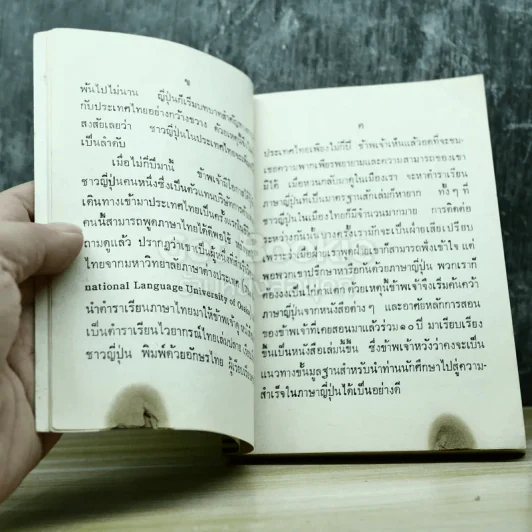 ข
พ้นไปไม่นาน ญี่ปุ่นก็เริ่มบทบาทสำคัญ
กับประเทศไทยอย่างกว้างขวาง ด้วยเหตุนี้
สงสัยเลยว่า ชาวญี่ปุ่นในประเทศไทยจะเพิ่ม
เป็นลำดับ
เมื่อไม่กี่ปีมานี้ ข้าพเจ้ามีโอกาส
ชาวญี่ปุ่นคนหนึ่งซึ่งเป็นตัวแทนบริษัทการค้า
เดินทางเข้ามาประเทศไทยเป็นครั้งแรก
คนนี้สามารถพูดภาษาไทยได้ดีพอใช้
ถามดูแล้ว ปรากฏว่าเขาเป็นผู้หนึ่งที่สำเร็จ
ไทยจากมหาวิทยาลัยภาษาต่างประเทศ
national Language University of Osaka
นำตำราเรียนภาษาไทยมาให้ข้าพเจ้าดู
เป็นตำราเรียนไวยากรณ์ไทยเล่มปลาย
ชาวญี่ปุ่น พิมพ์ด้วยอักษรไทย ผู้เรียบเรียง
ค
ประเทศไทยเพียงไม่กี่ปี ข้าพเจ้าเห็นแล้วอดที่จะชม-
เชยความพากเพียรพยายามและความสามารถของเขา
มิได้ เมื่อหวนกลับมาดูในเมืองเรา จะหาตำราเรียน
ภาษาญี่ปุ่นที่เป็นมาตรฐานสักเล่มก็หายาก ทั้งๆ ที่
ชาวญี่ปุ่นในเมืองไทยก็มีจำนวนมากมาย การติดต่อ
ระหว่างกันนั้น บางครั้งเรามักจะเป็นฝ่ายเสียเปรียบ
เพราะว่าเมื่อฝ่ายเราพูดอะไรเขาก็สามารถฟังเข้าใจ แต่
พอพวกเขาปรึกษาหารือกันด้วยภาษาญี่ปุ่น พวกเราก็
คงงงเป็นไก่ตาแตก ด้วยเหตุนี้ข้าพเจ้าจึงเริ่มค้นคว้า
ภาษาญี่ปุ่นจากหนังสือต่างๆ และอาศัยหลักการสอน
ของข้าพเจ้าที่เคยสอนมาแล้วร่วม ๑๐ ปี มาเรียบเรียง
ขึ้นเป็นหนังสือเล่มนี้ขึ้น ซึ่งข้าพเจ้าหวังว่าคงจะเป็น
แนวทางขั้นมูลฐานสำหรับนำท่านนักศึกษาไปสู่ความ-
สำเร็จในภาษาญี่ปุ่นได้เป็นอย่างดี